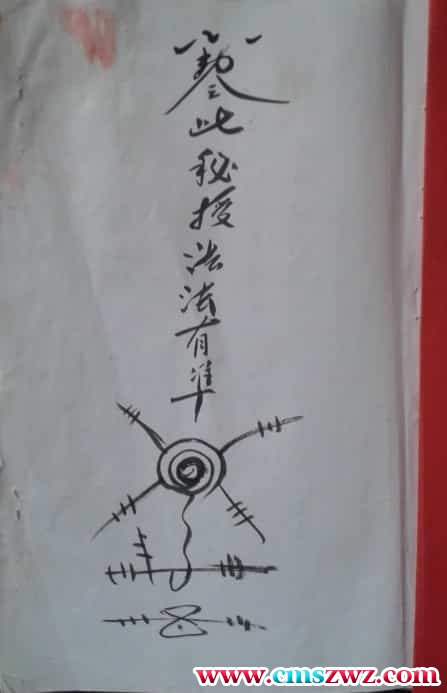 敕令
此秘授法法有準
www.cmszwz.com